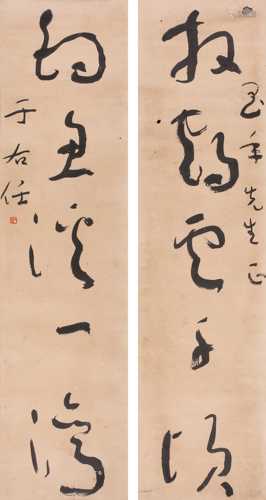 先生正
放鶴雲千頃
釣魚溪一灣
于右任